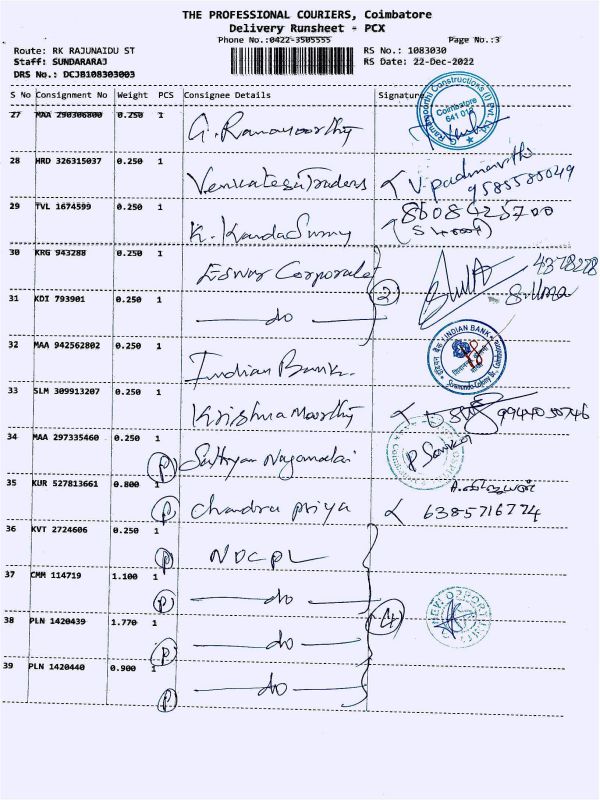 THE PROFESSIONAL COURIERS, Coimbatore
Delivery Runsheet - PCX
Phone No.:0422-3505555
Page No.:3
Route: RK RAJUNAIDU ST
RS No.: 1083030
Staff: SUNDARARAJ
RS Date: 22-Dec-2022
DRS No.: DCJB108303003
S No Consignment No Weight PCS Consignee Details Signature
27 MAA 290306800 0.250 1 G. Ramamoorthy
Coimbatore
641 012
28 HRD 326315037 0.250 1 Venkatesa Traders V. padmavathi
9585585049
29 TVL 1674599 0.250 1 K. Kanda Samy
30 KRG 943288 0.250 1 Eswar Corporate
4378278
S. Uma
31 KDI 793901 0.250 1 do 2
32 MAA 942562802 0.250 1 Indian Bank.
INDIAN BANK
33 SLM 309913207 0.250 1 Krishna Moorthy
34 MAA 297335460 0.250 1 P Sathyan Nagamalai P. Sankar
35 KUR 527813661 0.800 1 P Chandra priya 6385716774
36 KVT 2724606 0.250 1 P NDCPL
37 CMM 114719 1.100 1 P do
38 PLN 1420439 1.770 1 P do 4
39 PLN 1420440 0.900 1 P do